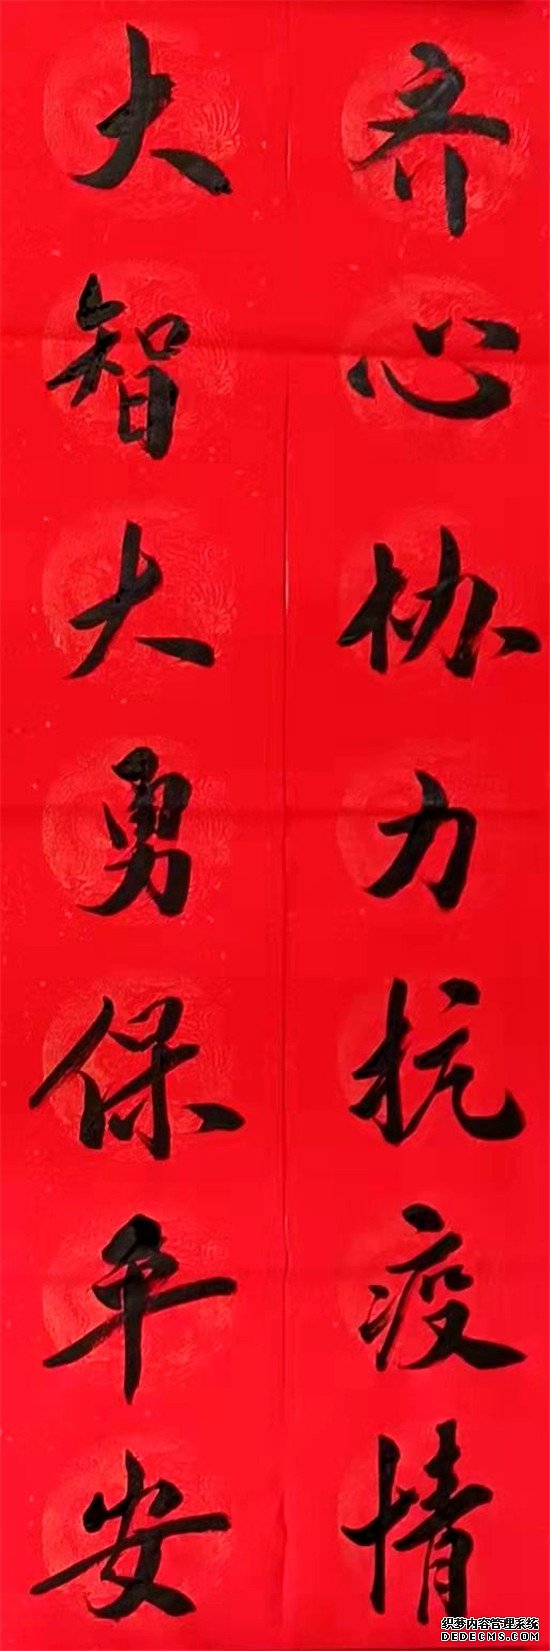 齐心协力抗疫情
大智大勇保平安
织梦内容管理系统
DEDECMS.COM